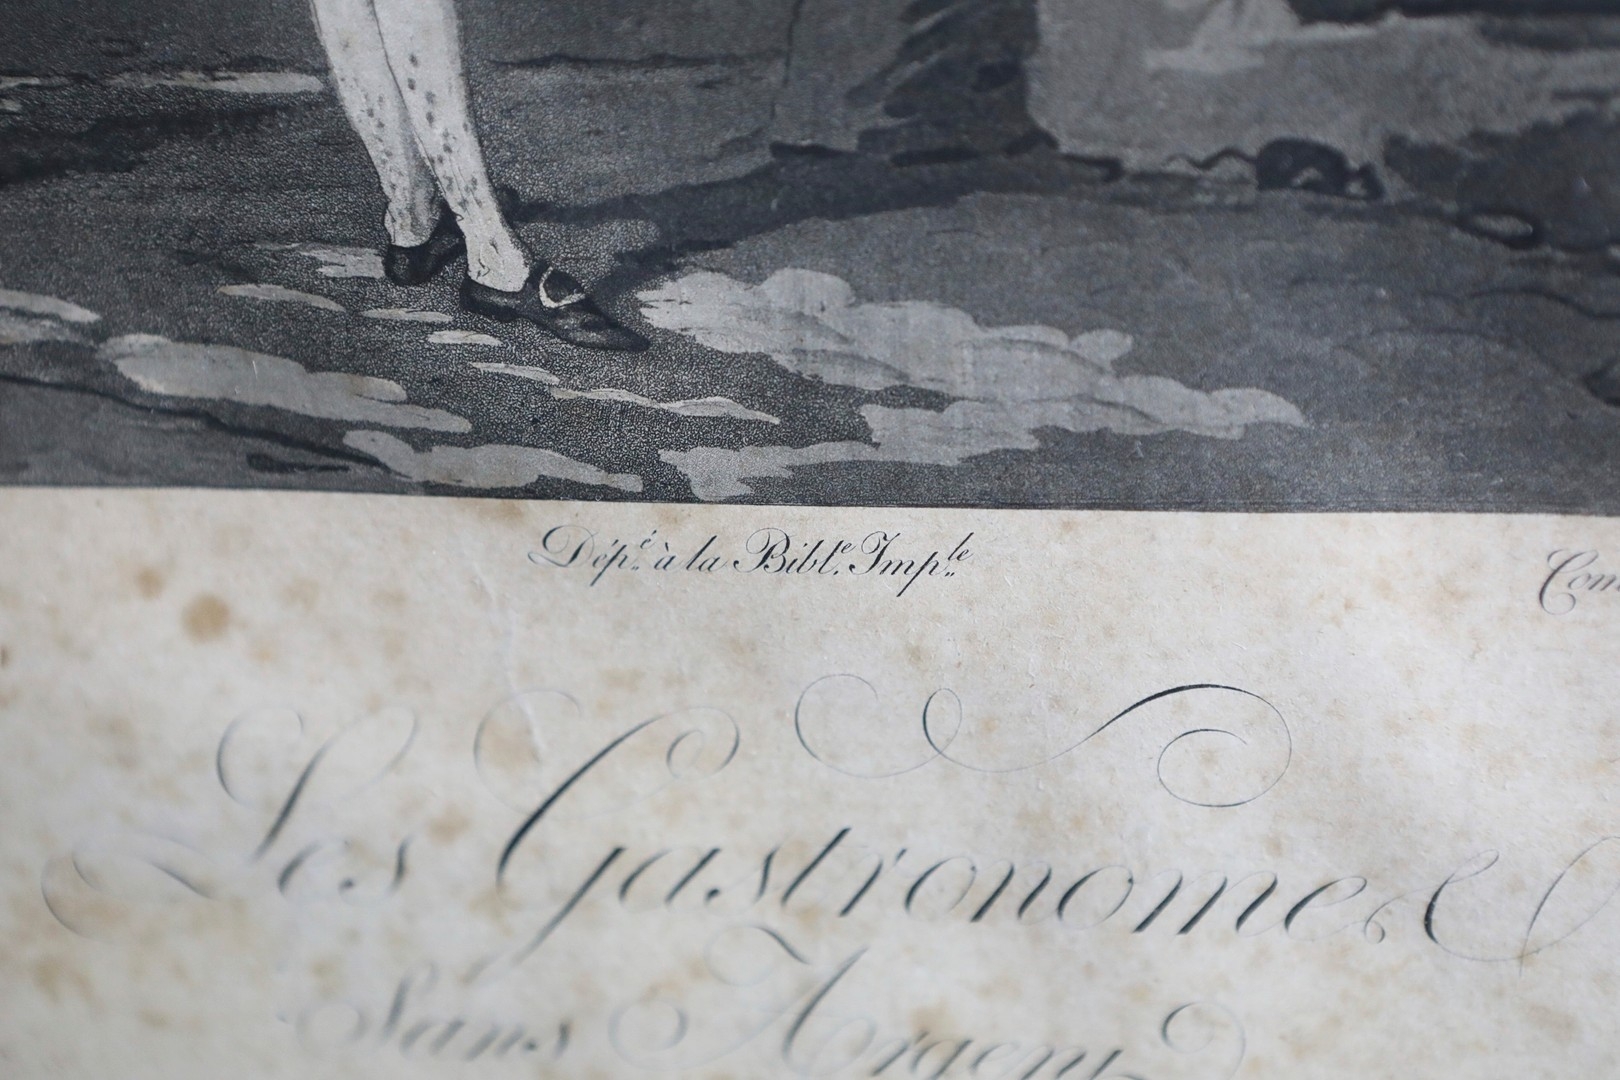 Dépé. à la Biblte. Imple.
Les Gastronomes
Sans Argent